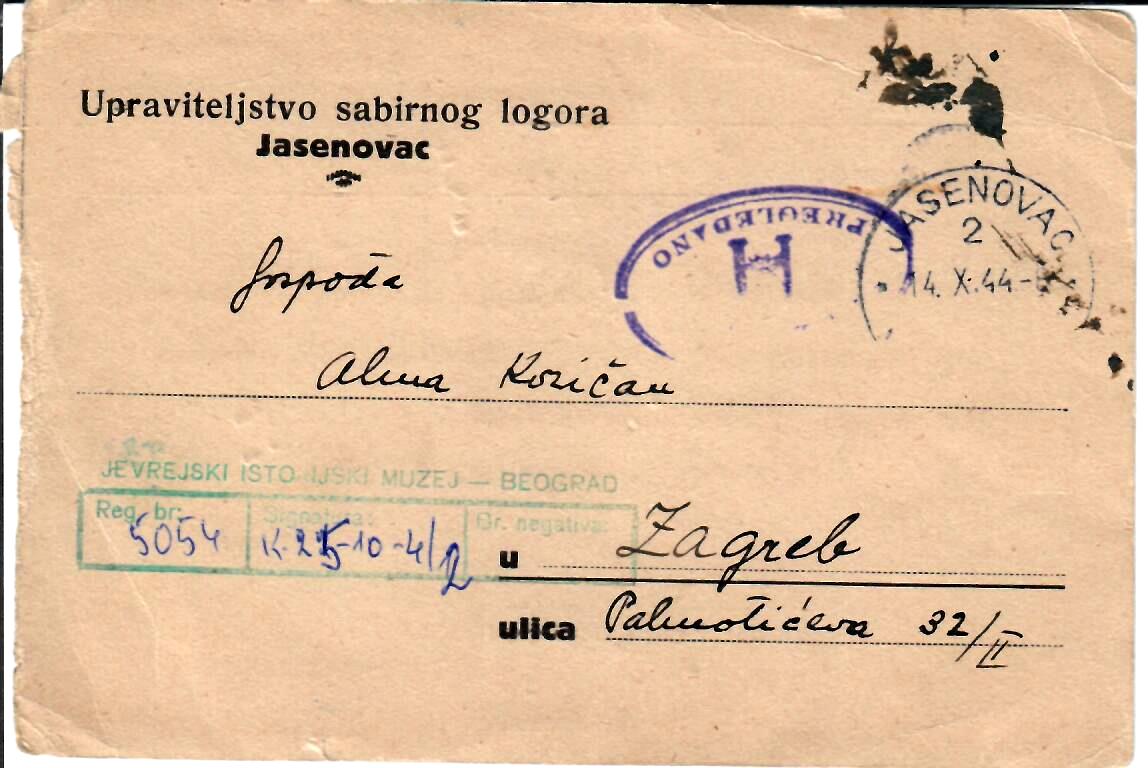 Upraviteljstvo sabirnog logora
Jasenovac
PREGLEDANO
JASENOVAC
2
14. X. 44-
Gospođa
Alma Koričan
JEVREJSKI ISTO IJSKI MUZEJ — BEOGRAD
Reg. br:
Signatura:
Br. negativa:
5054
K-25-10-4/2
u Zagreb
ulica Palmotićeva 32/II